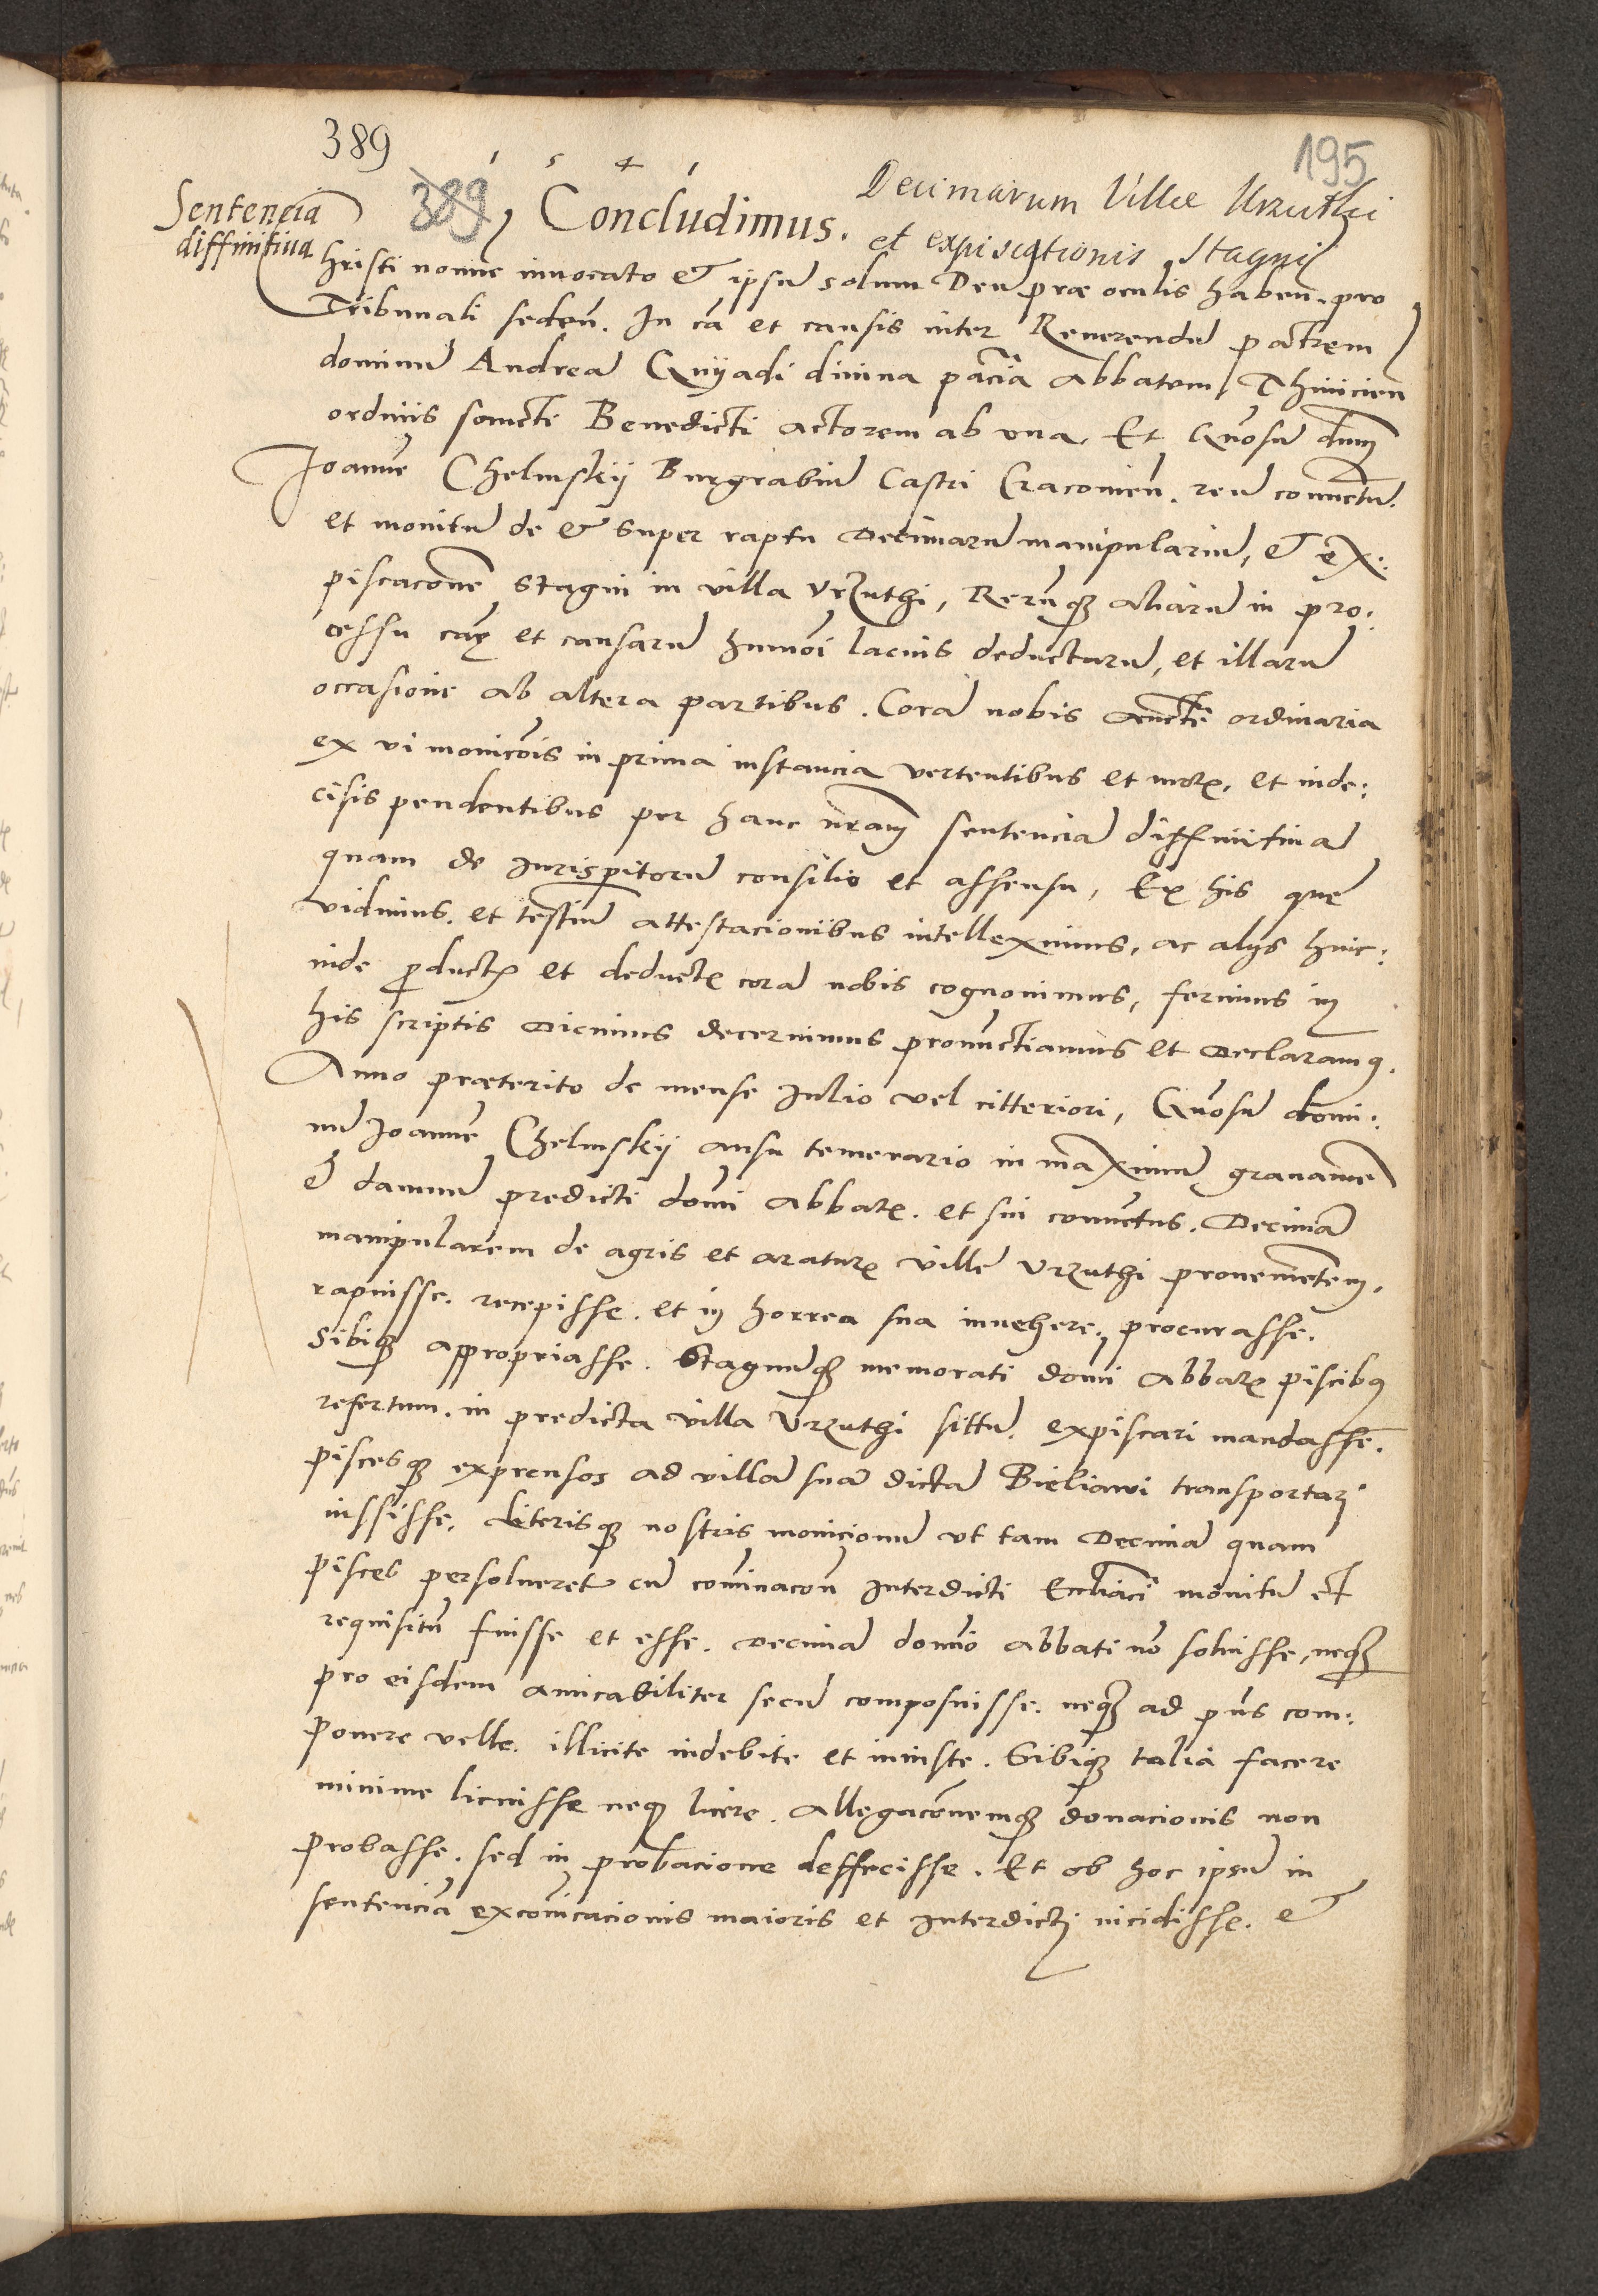 389
195
1 5 4 1
Sentencia
diffinitiua
389
Concludimus.
Decimarum Villae Vrzuthi
et expiscationis Stagni
Christi nomine inuocato et ipsum solum Deum prae oculis haben. pro
Tribunali seden. In cã et causis inter Reuerendũ patrem
dominũ Andreã Gnyadi diuina pãciã Abbatem Thinicien
ordinis sancti Benedicti actorem ab vna, Et Gñosũ dnũ
Joannẽ Chelmskij Burgrabiũ Castri Cracouien. reũ conuẽtũ.
et monitũ de et super raptu Decimarũ manipulariũ, et ex:
piscacõne Stagni in villa Vrzuthi, Rerũq3 aliarũ in pro:
cessu cãę et causarũ hmõi lacius deductarũ, et illarũ
occasione ab altera partibus. Corã nobis auctẽ ordinaria
ex vi monicõis in prima instancia vertentibus et
et inde:
cisis pendentibus per hanc nrãm sentenciã diffinitiuã
quam de Jurisperitorũ consilio et assensu, Ex his quę
vidimus. et testiũ attestacionibus intelleximus, ac alijs hinc:
inde productis et deductis corã nobis cognouimus, ferimus in
his scriptis Dicimus decernimus pronunctiamus et Declaramus.
Anno praeterito de mense Julio vel citteriori, Gñosũ domi:
nũ Joannẽ Chelmskij ausu temerario in maximũ grauamẽ
et damnũ predicti domi Abbatis. et sui conuẽtus. Decimã
manipularem de agris et araturis villę Vrzuthi prouenientem.
rapuisse. recepisse. et in horrea sua inuehere, procurasse.
Sibiq3 appropriasse. Stagnũq3 memorati domi Abbatis piscibus
refertum. in predicta villa Vrzuthi sittũ. expiscari mandasse.
piscesq3 exprensos ad villã suã dictã Bieliawi transportari
iussisse. Literisq3 nostris monicionũ vt tam Decimã quam
pisces persolueret cũ cominacõn Interdicti Ecclĩaci monitũ et
requisitũ fuisse et esse. Decimã domino Abbati nõ soluisse, neq3
pro eisdem amicabiliter secũ composuisse. neq3 ad pñs com:
ponere velle. illicite indebite et iniuste. Sibiq3 talia facere
minime licuisse neq3 licere. Allegacõnemq3 donacionis non
probasse. sed in probacione deffecisse. Et ob hoc ipsũ in
sentenciã excõicacionis maioris et Interdicti incidisse. et